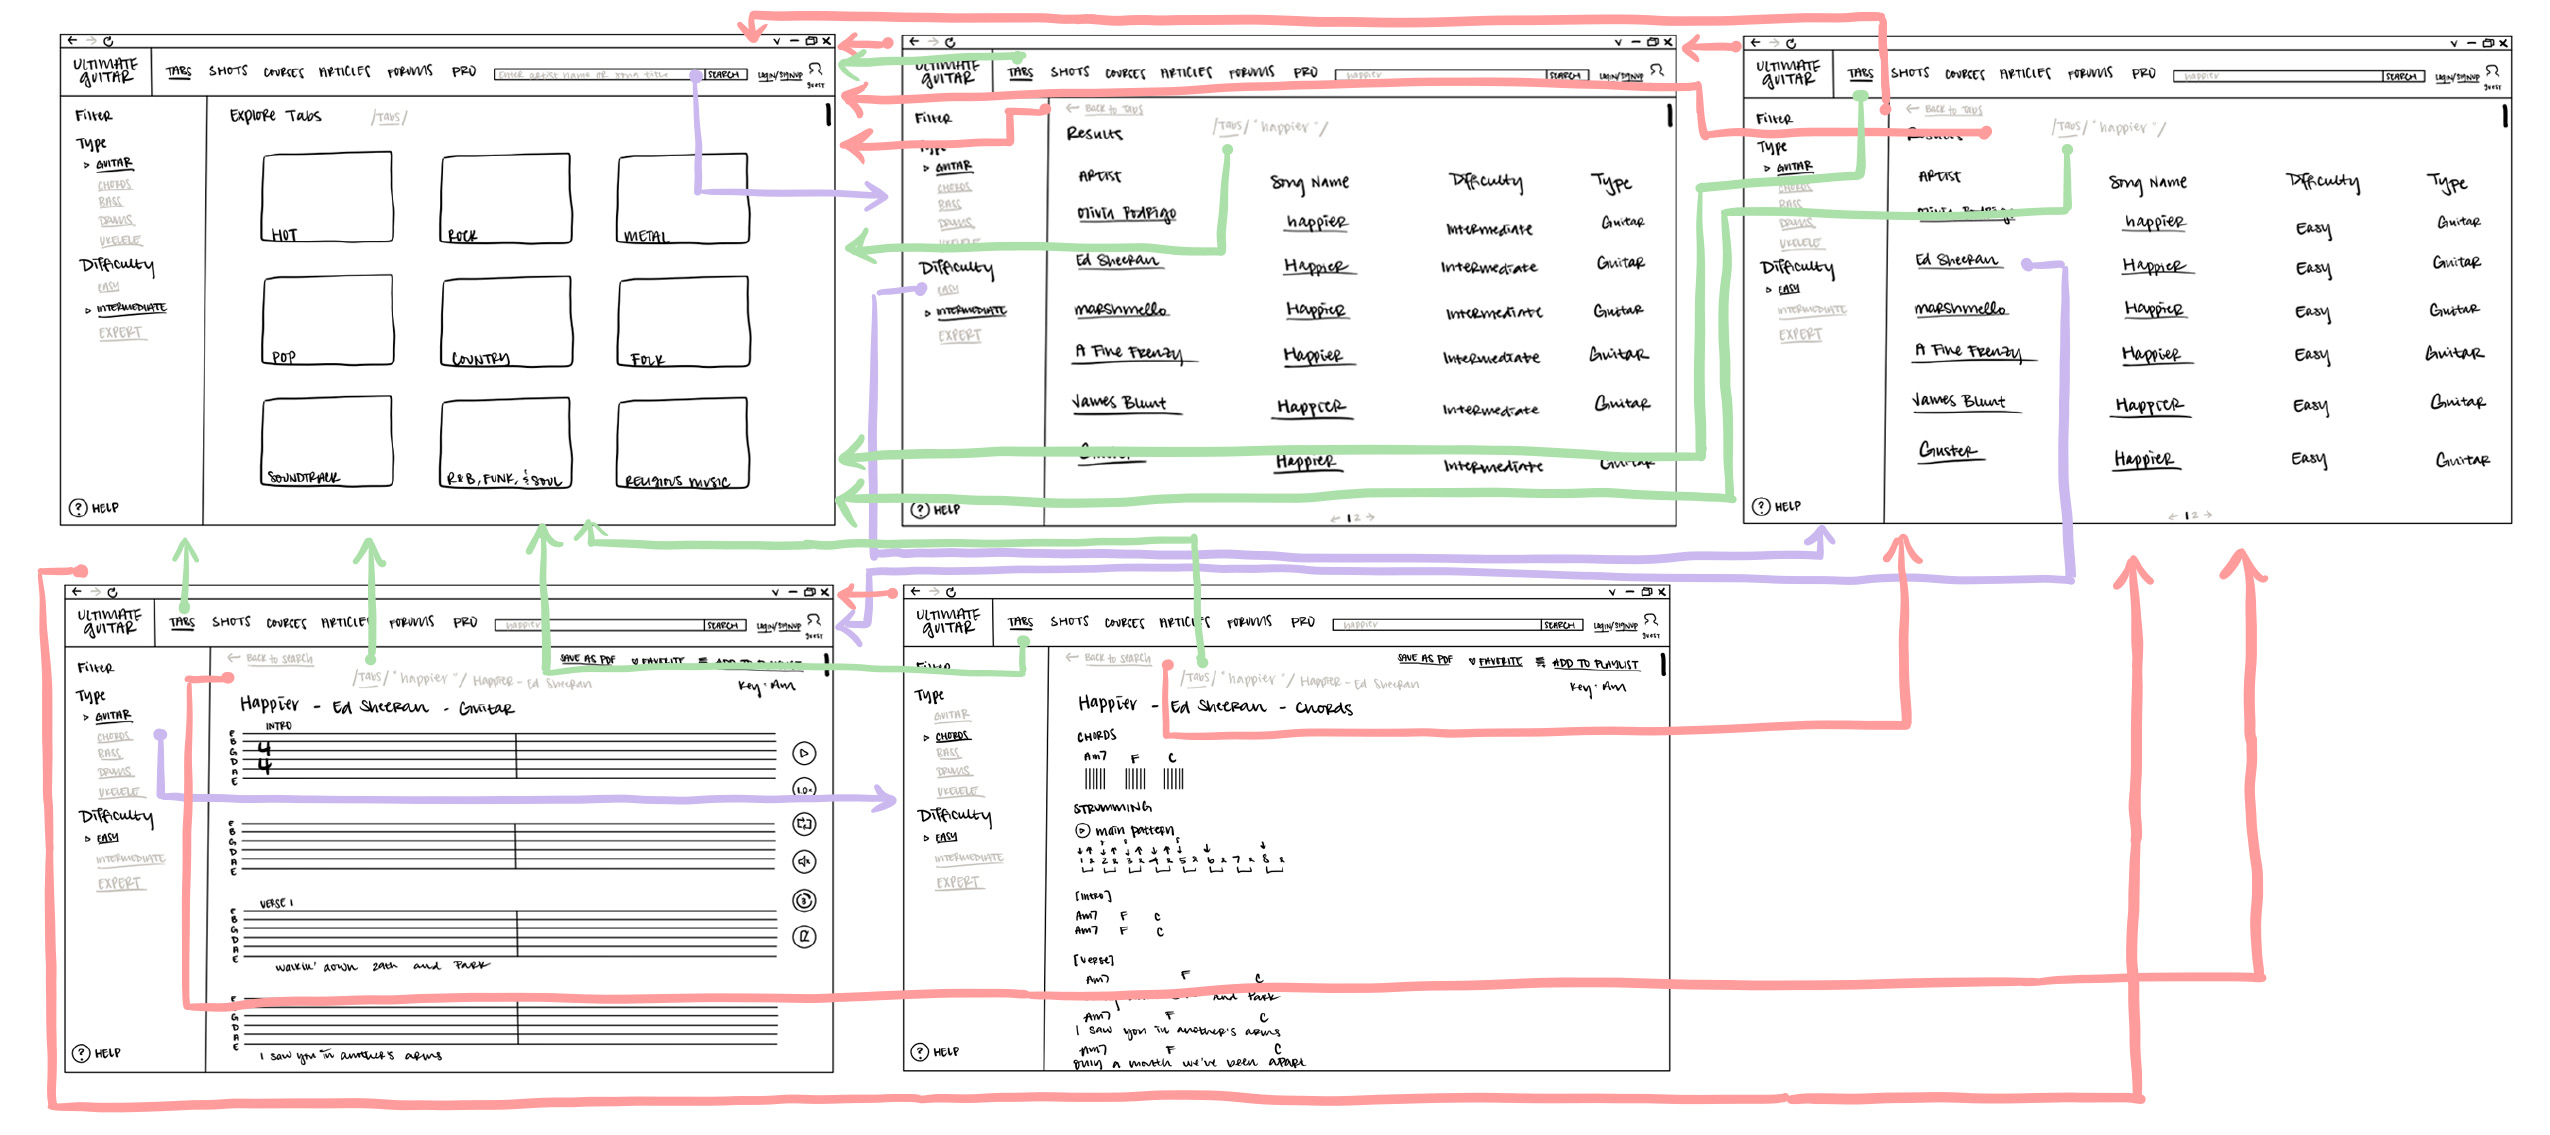 ULTIMATE GUITAR
TABS SHOTS COURSES ARTICLES FORUMS PRO
Enter artist name or song title SEARCH LOGIN/SIGNUP GUEST
Filter
Type
GUITAR
CHORDS
BASS
DRUMS
UKELELE
Difficulty
EASY
INTERMEDIATE
EXPERT
? HELP
Explore Tabs /Tabs/
HOT ROCK METAL
POP COUNTRY FOLK
SOUNDTRACK R&B, FUNK, & SOUL RELIGIOUS MUSIC
ULTIMATE GUITAR
TABS SHOTS COURSES ARTICLES FORUMS PRO
happier SEARCH LOGIN/SIGNUP
Filter
Type
GUITAR
CHORDS
BASS
DRUMS
UKELELE
Difficulty
EASY
INTERMEDIATE
EXPERT
? HELP
← Back to Tabs
Results /Tabs/"happier"/
ARTIST Song Name Difficulty Type
Olivia Rodrigo happier Intermediate Guitar
Ed Sheeran Happier Intermediate Guitar
marshmello Happier Intermediate Guitar
A Fine Frenzy Happier Intermediate Guitar
James Blunt Happier Intermediate Guitar
Happier Intermediate Guitar
← 1 2 →
ULTIMATE GUITAR
TABS SHOTS COURSES ARTICLES FORUMS PRO
happier SEARCH LOGIN/SIGNUP GUEST
Filter
Type
GUITAR
CHORDS
BASS
DRUMS
UKELELE
Difficulty
EASY
INTERMEDIATE
EXPERT
? HELP
← Back to Tabs
Results /Tabs/"happier"/
ARTIST Song Name Difficulty Type
Olivia Rodrigo happier Easy Guitar
Ed Sheeran Happier Easy Guitar
marshmello Happier Easy Guitar
A Fine Frenzy Happier Easy Guitar
James Blunt Happier Easy Guitar
Guster Happier Easy Guitar
← 1 2 →
ULTIMATE GUITAR
TABS SHOTS COURSES ARTICLES FORUMS PRO
happier SEARCH LOGIN/SIGNUP GUEST
Filter
Type
GUITAR
CHORDS
BASS
DRUMS
UKELELE
Difficulty
EASY
INTERMEDIATE
EXPERT
? HELP
← Back to search SAVE AS PDF ♡ FAVORITE ADD TO PLAYLIST
/Tabs/"happier"/ Happier - Ed Sheeran
Key: Am
Happier - Ed Sheeran - Guitar
INTRO
e
B
G
D
A
E
4
4
1.0x
e
B
G
D
A
E
VERSE 1
e
B
G
D
A
E
walkin' down 29th and Park
G
D
A
E
I saw you in another's arms
ULTIMATE GUITAR
TABS SHOTS COURSES ARTICLES FORUMS PRO
happier SEARCH LOGIN/SIGNUP GUEST
Filter
Type
GUITAR
CHORDS
BASS
DRUMS
UKELELE
Difficulty
EASY
INTERMEDIATE
EXPERT
? HELP
← Back to search SAVE AS PDF ♡ FAVORITE ADD TO PLAYLIST
/Tabs/"happier"/ Happier - Ed Sheeran
Key: Am
Happier - Ed Sheeran - Chords
CHORDS
Am7 F C
STRUMMING
main pattern
1 & 2 & 3 & 4 & 5 & 6 & 7 & 8 &
[Intro]
Am7 F C
Am7 F C
[Verse]
Am7 F C
and Park
Am7 F C
I saw you in another's arms
Am7 F C
only a month we've been apart